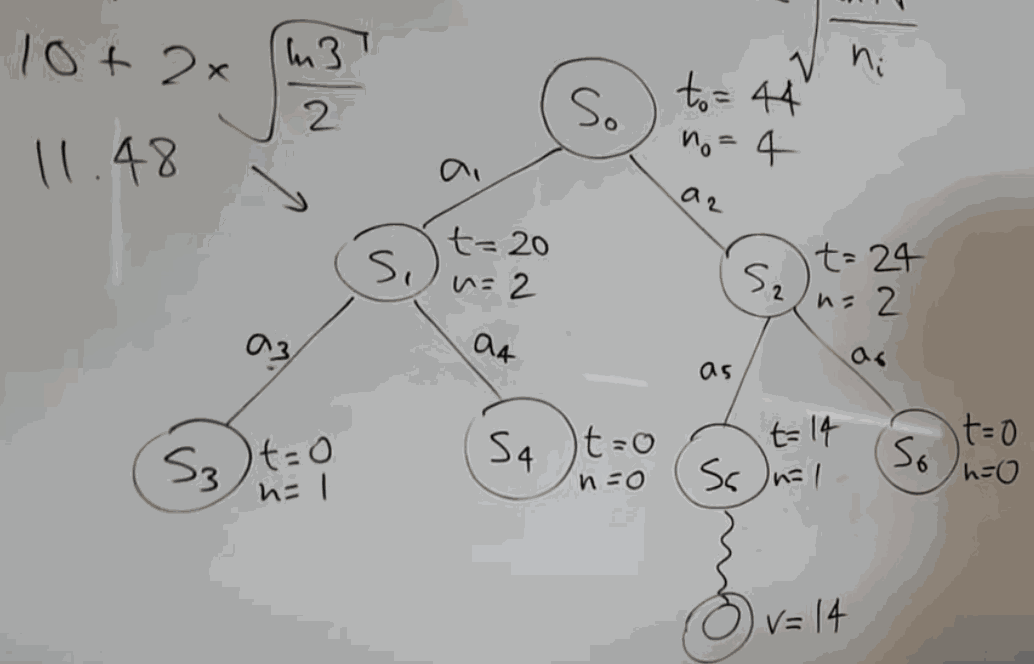 10 + 2 x √ ln3 / 2
11.48
n i
S0
t0 = 44
n0 = 4
a1
a2
S1
t = 20
n = 2
S2
t = 24
n = 2
a3
a4
a5
a6
S3
t = 0
n = 1
S4
t = 0
n = 0
S5
t = 14
n = 1
S6
t = 0
n = 0
v = 14